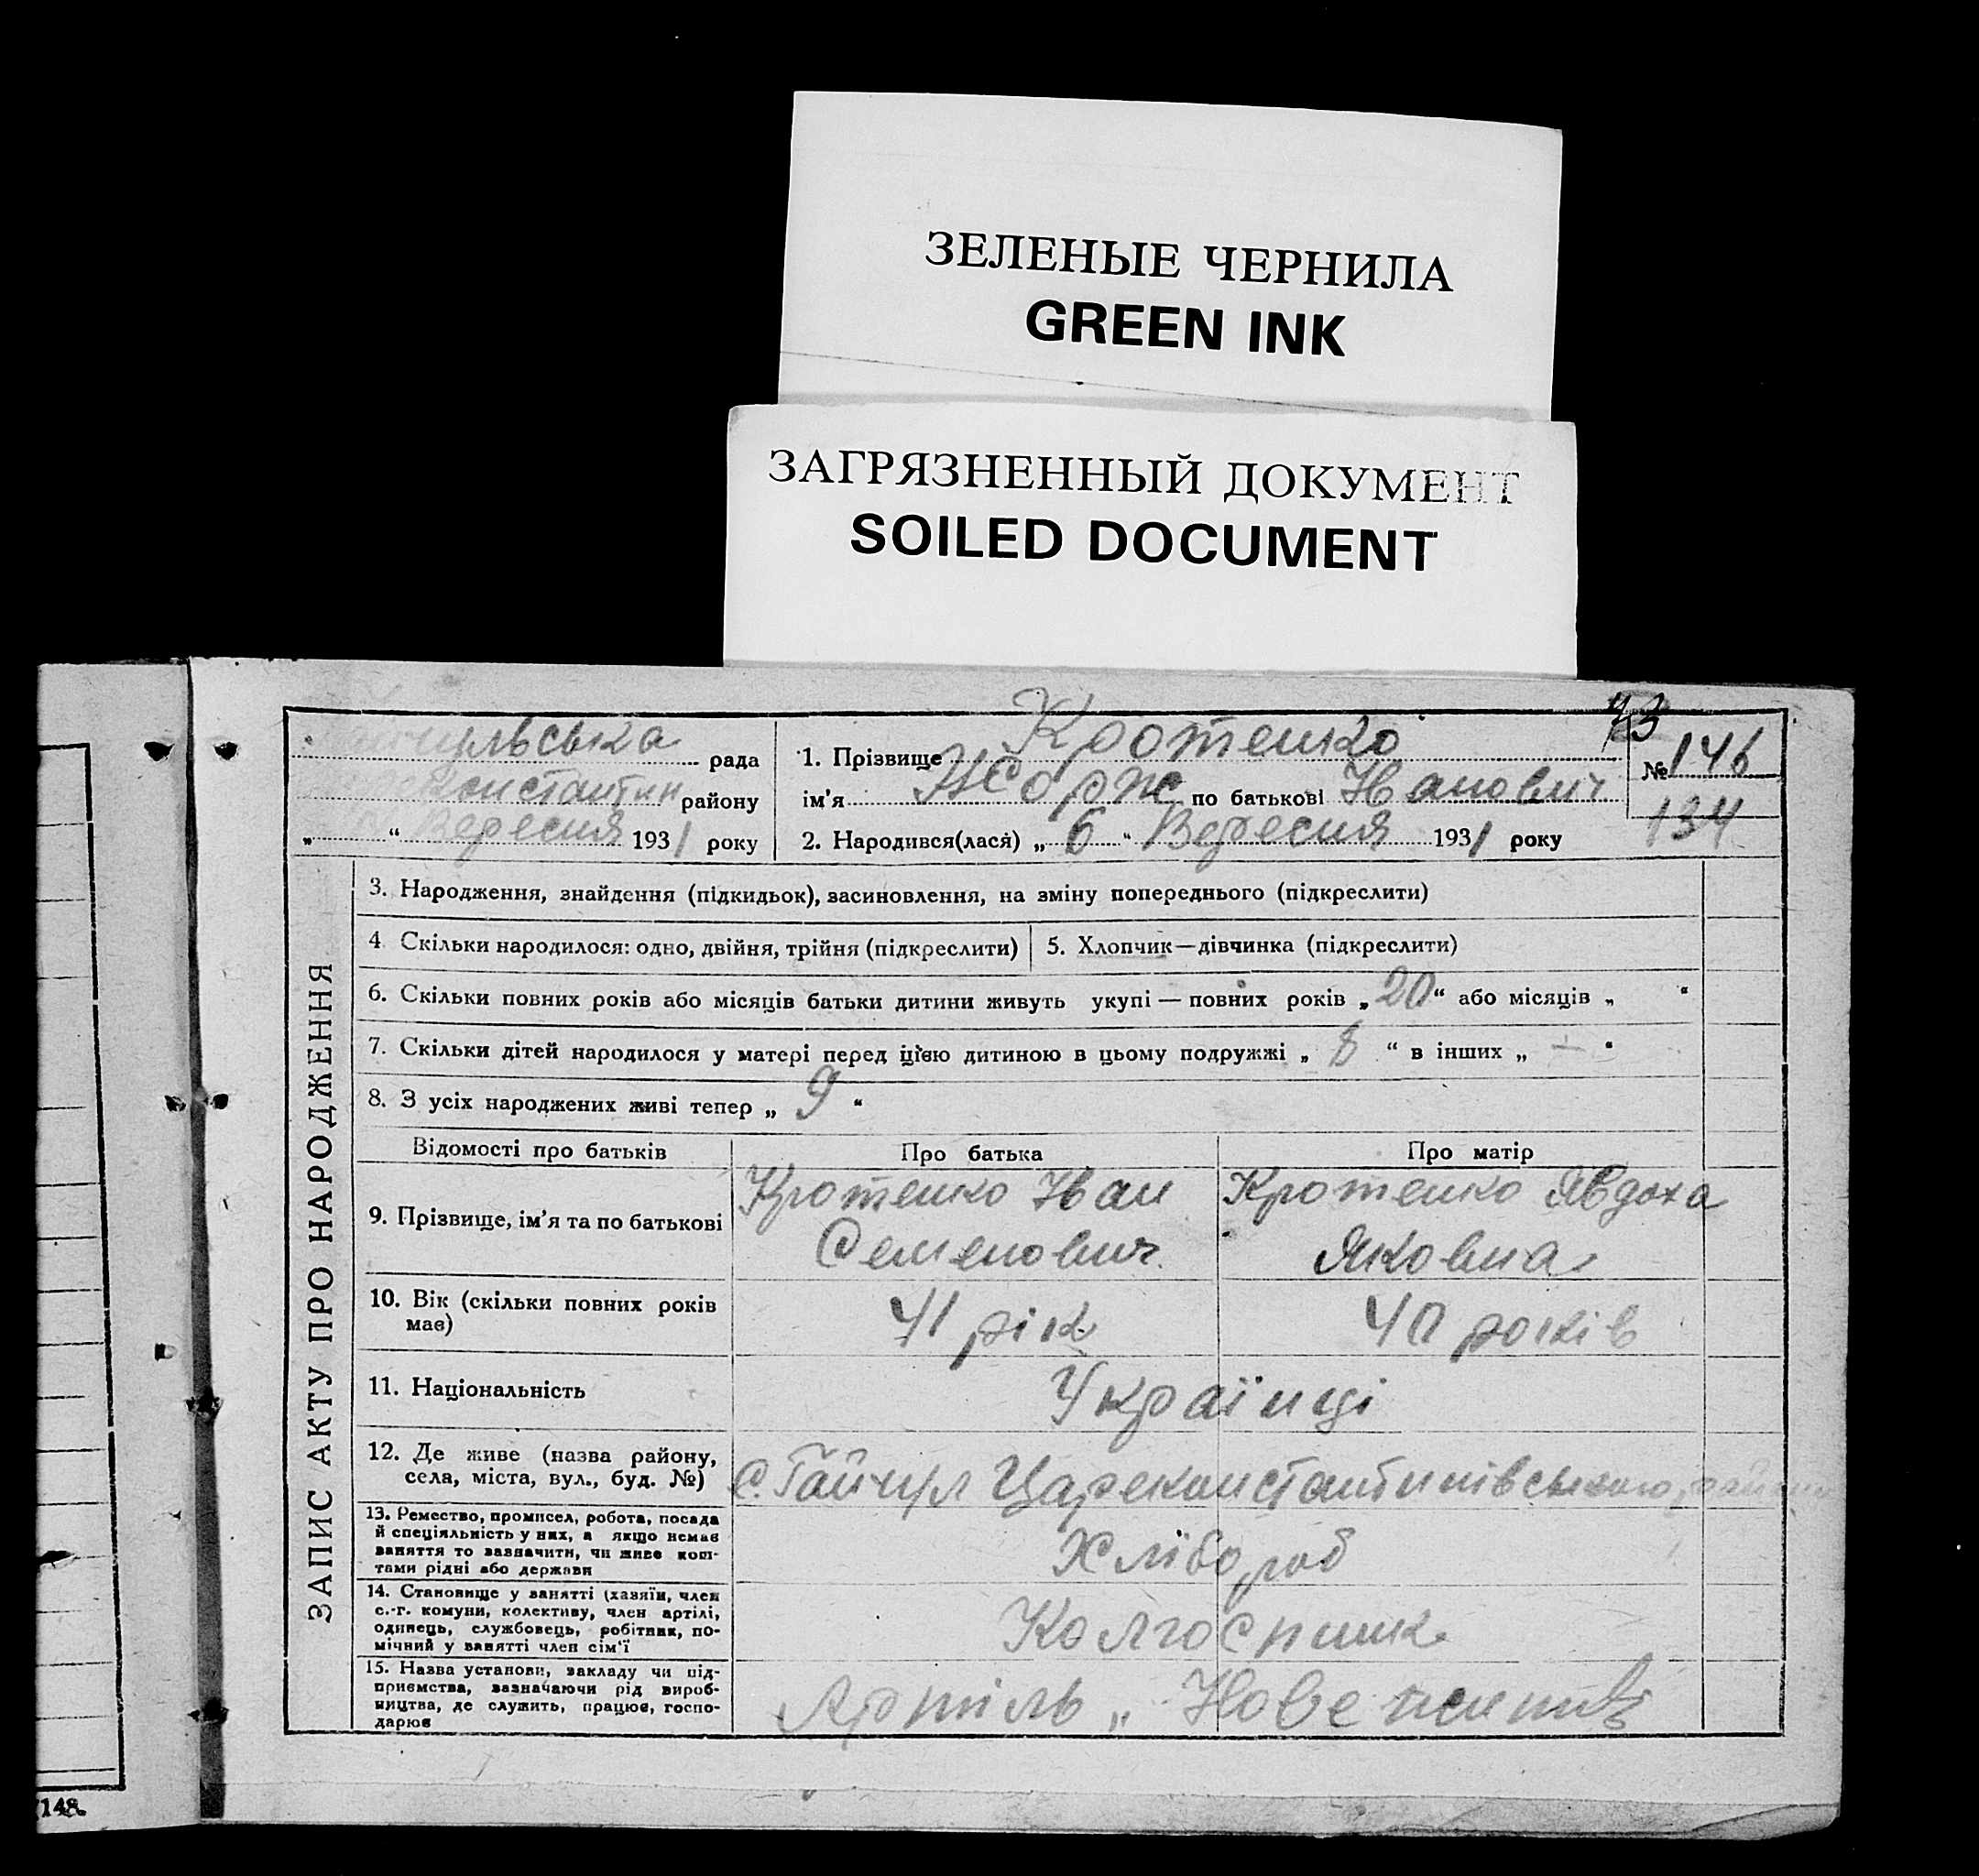 ЗЕЛЕНЫЕ ЧЕРНИЛА
GREEN INK
ЗАГРЯЗНЕННЫЙ ДОКУМЕНТ
SOILED DOCUMENT
рада
району
„ “ Вересня 1931 року
1. Прізвище Кротенко
ім'я Жорж по батькові Іванович
2. Народився(лася) „ 6 “ Вересня 1931 року
№ 146
134
ЗАПИС АКТУ ПРО НАРОДЖЕННЯ
3. Народження, знайдення (підкидьок), засиновлення, на зміну попереднього (підкреслити)
4. Скільки народилося: одно, двійня, трійня (підкреслити)
5. Хлопчик—дівчинка (підкреслити)
6. Скільки повних років або місяців батьки дитини живуть укупі — повних років „ 20 “ або місяців „ “
7. Скільки дітей народилося у матері перед цією дитиною в цьому подружжі „ 8 “ в інших „ — “
8. З усіх народжених живі тепер „ 9 “
Відомості про батьків
Про батька
Про матір
9. Прізвище, ім'я та по батькові
Кротенко Іван
Семенович
Кротенко Явдоха
Яковна
10. Вік (скільки повних років
має)
41 рік
40 років
11. Національність
Українці
12. Де живе (назва району,
села, міста, вул., буд. №)
с. Гайчул Царекоистантинівського району
13. Ремество, промисел, робота, посада
й спеціяльність у них, а якщо немає
заняття то зазначити, чи живе кош-
тами рідні або держави
Хлібороб
14. Становище у занятті (хазяїн, член
с.-г. комуни, колективу, член артілі,
одинець, службовець, робітник, по-
мічний у занятті член сім'ї
Колгоспник
15. Назва установи, закладу чи під-
приємства, зазначаючи рід вироб-
ництва, де служить, працює, госпо-
дарює
Артіль „ Нове життя
148.